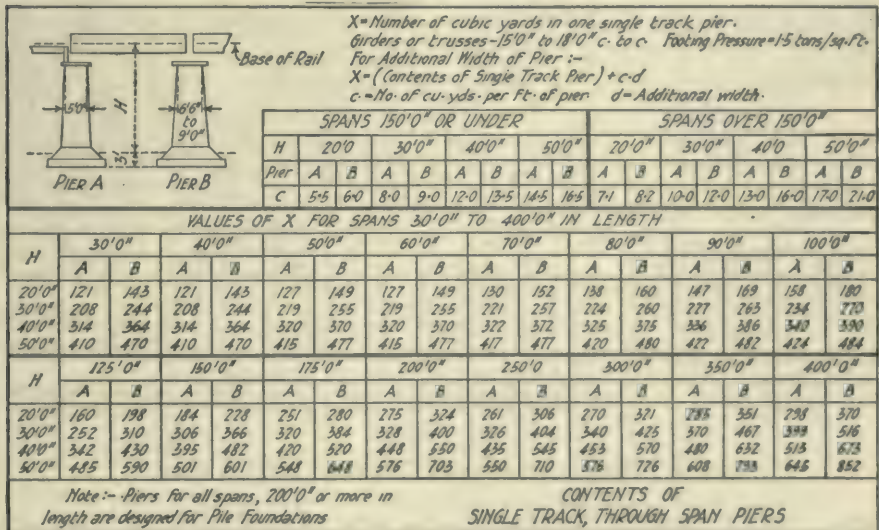 X=Number of cubic yards in one single track pier.
Girders or trusses-15'0" to 18'0" c. to c. Footing Pressure=1.5 tons/sq.ft.
Base of Rail
For Additional Width of Pier :-
X=(Contents of Single Track Pier)+c.d
c.=No. of cu. yds. per ft. of pier. d=Additional width.
5'0" H 6'6" to 9'0"
3'
PIER A PIER B
SPANS 150'0" OR UNDER SPANS OVER 150'0"
H 20'0 30'0" 40'0" 50'0" 20'0" 30'0" 40'0 50'0"
Pier A B A B A B A B A B A B A B A B
C 5.5 6.0 8.0 9.0 12.0 13.5 14.5 16.5 7.1 8.2 10.0 12.0 13.0 16.0 17.0 21.0
VALUES OF X FOR SPANS 30'0" TO 400'0" IN LENGTH
H 30'0" 40'0" 50'0" 60'0" 70'0" 80'0" 90'0" 100'0"
A B A B A B A B A B A B A B A B
20'0" 121 143 121 143 127 149 127 149 130 152 138 160 147 169 158 180
30'0" 208 244 208 244 219 255 219 255 221 257 224 260 227 263 234 270
40'0" 314 364 314 364 320 370 320 370 322 372 325 375 336 386 340 390
50'0" 410 470 410 470 415 477 415 477 417 477 420 480 422 482 424 484
H 125'0" 150'0" 175'0" 200'0" 250'0 300'0" 350'0" 400'0"
A B A B A B A B A B A B A B A B
20'0" 160 198 184 228 251 280 275 324 261 306 270 321 285 351 298 370
30'0" 252 310 306 366 320 384 328 400 326 404 340 425 370 467 516
40'0" 342 430 395 482 420 520 448 550 435 545 453 570 480 632 513 673
50'0" 485 590 501 601 548 648 576 703 550 710 576 726 608 793 645 852
Note :- Piers for all spans, 200'0" or more in
length are designed for Pile Foundations
CONTENTS OF
SINGLE TRACK, THROUGH SPAN PIERS